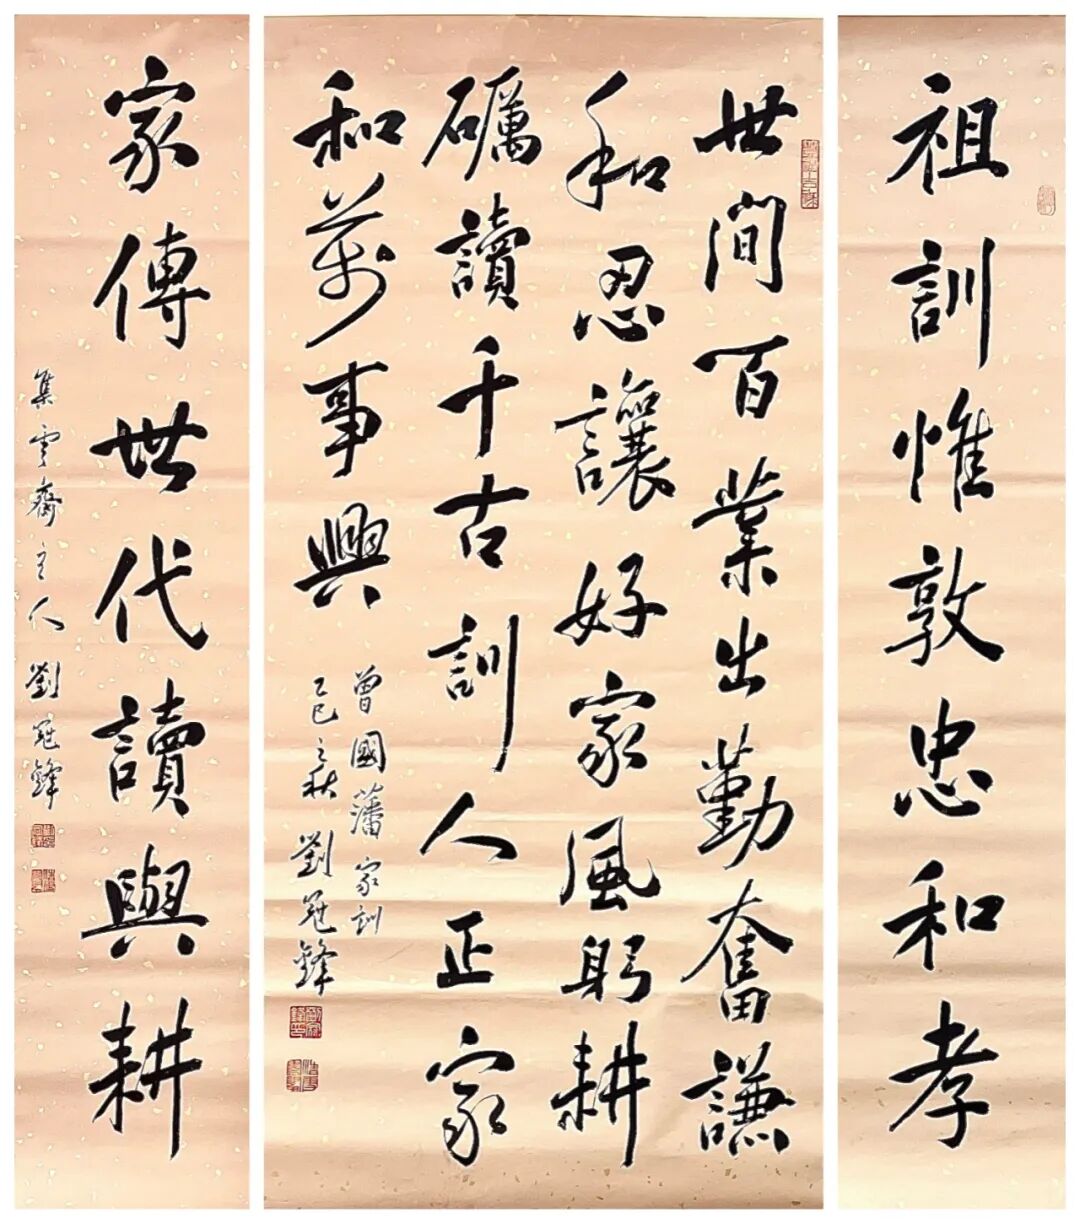 祖訓惟敦忠和孝
世間百業出勤奮謙
和忍讓好家風躬耕
礪讀千古訓人正家
和萬事興
曾國藩家訓
乙巳之秋 劉冠鋒
家傳世代讀與耕
集雲齋主人 劉冠鋒